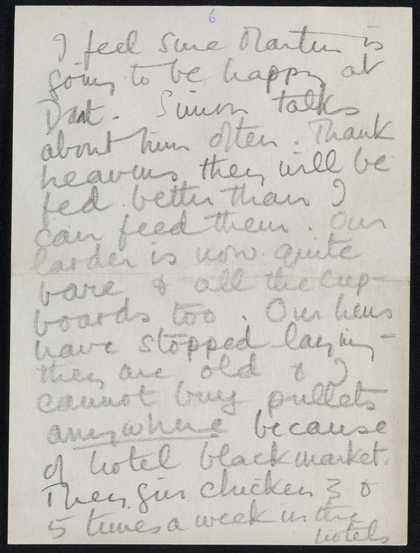 6
I feel sure Martin is
going to be happy at
Dart. Simon talks
about him often. Thank
heavens they will be
fed better than I
can feed them. Our
larder is now quite
bare & all the cup-
boards too. Our hens
have stopped laying -
they are old & I
cannot buy pullets
anywhere because
of hotel black market.
They give chicken 3 &
5 times a week in the
hotels